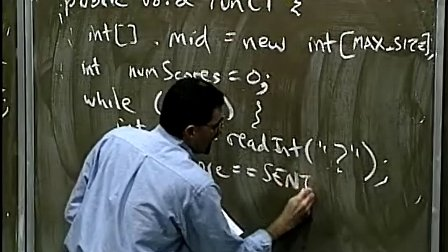 public void run() {
int[] mid = new int[MAX_SIZE];
int numScores = 0;
while ( ) {
readInt("?");
== SENT